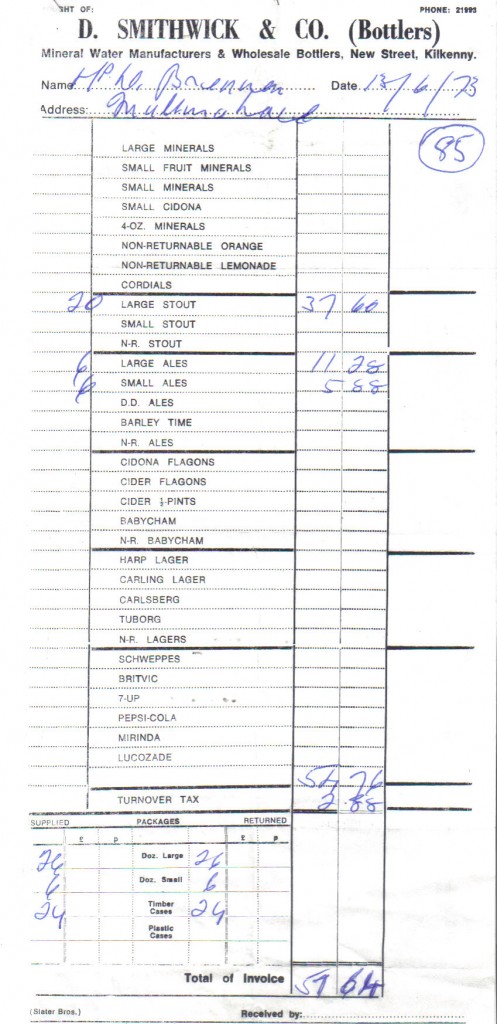 GHT OF: PHONE: 21993
D. SMITHWICK & CO. (Bottlers)
Mineral Water Manufacturers & Wholesale Bottlers, New Street, Kilkenny.
Name Brennan Date 13/6/73
Address:
85
LARGE MINERALS
SMALL FRUIT MINERALS
SMALL MINERALS
SMALL CIDONA
4-OZ. MINERALS
NON-RETURNABLE ORANGE
NON-RETURNABLE LEMONADE
CORDIALS
20 LARGE STOUT 37 60
SMALL STOUT
N-R. STOUT
6 LARGE ALES 11 28
6 SMALL ALES 5 88
D.D. ALES
BARLEY TIME
N-R. ALES
CIDONA FLAGONS
CIDER FLAGONS
CIDER ½-PINTS
BABYCHAM
N-R. BABYCHAM
HARP LAGER
CARLING LAGER
CARLSBERG
TUBORG
N-R. LAGERS
SCHWEPPES
BRITVIC
7-UP
PEPSI-COLA
MIRINDA
LUCOZADE
54 76
TURNOVER TAX 2.88
SUPPLIED PACKAGES RETURNED
£ p £ p
26 Doz. Large 26
6 Doz. Small 6
24 Timber Cases 24
Plastic Cases
Total of Invoice 57 64
(Slater Bros.) Received by: